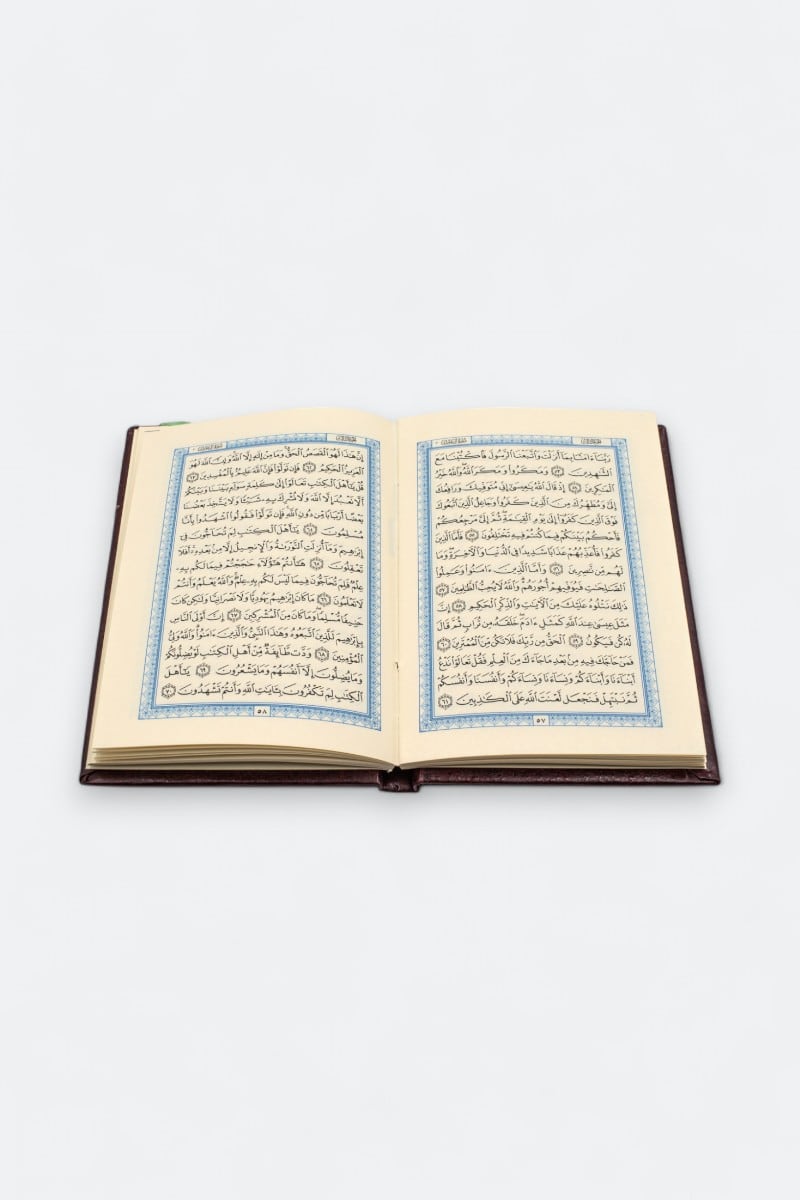 رَبَّنَآ ءَامَنَّا بِمَآ أَنزَلْتَ وَٱتَّبَعْنَا ٱلرَّسُولَ فَٱكْتُبْنَا مَعَ
ٱلشَّٰهِدِينَ ٥٣ وَمَكَرُوا۟ وَمَكَرَ ٱللَّهُ وَٱللَّهُ خَيْرُ
ٱلْمَٰكِرِينَ ٥٤ إِذْ قَالَ ٱللَّهُ يَٰعِيسَىٰٓ إِنِّى مُتَوَفِّيكَ وَرَافِعُكَ
إِلَىَّ وَمُطَهِّرُكَ مِنَ ٱلَّذِينَ كَفَرُوا۟ وَجَاعِلُ ٱلَّذِينَ ٱتَّبَعُوكَ
فَوْقَ ٱلَّذِينَ كَفَرُوٓا۟ إِلَىٰ يَوْمِ ٱلْقِيَٰمَةِ ثُمَّ إِلَىَّ مَرْجِعُكُمْ
فَأَحْكُمُ بَيْنَكُمْ فِيمَا كُنتُمْ فِيهِ تَخْتَلِفُونَ ٥٥ فَأَمَّا ٱلَّذِينَ
كَفَرُوا۟ فَأُعَذِّبُهُمْ عَذَابًا شَدِيدًا فِى ٱلدُّنْيَا وَٱلْءَاخِرَةِ وَمَا
لَهُم مِّن نَّٰصِرِينَ ٥٦ وَأَمَّا ٱلَّذِينَ ءَامَنُوا۟ وَعَمِلُوا۟
ٱلصَّٰلِحَٰتِ فَيُوَفِّيهِمْ أُجُورَهُمْ وَٱللَّهُ لَا يُحِبُّ ٱلظَّٰلِمِينَ ٥٧
ذَٰلِكَ نَتْلُوهُ عَلَيْكَ مِنَ ٱلْءَايَٰتِ وَٱلذِّكْرِ ٱلْحَكِيمِ ٥٨ إِنَّ
مَثَلَ عِيسَىٰ عِندَ ٱللَّهِ كَمَثَلِ ءَادَمَ خَلَقَهُۥ مِن تُرَابٍ ثُمَّ قَالَ
لَهُۥ كُن فَيَكُونُ ٥٩ ٱلْحَقُّ مِن رَّبِّكَ فَلَا تَكُن مِّنَ ٱلْمُمْتَرِينَ ٦٠
فَمَنْ حَآجَّكَ فِيهِ مِنۢ بَعْدِ مَا جَآءَكَ مِنَ ٱلْعِلْمِ فَقُلْ تَعَالَوْا۟ نَدْعُ
أَبْنَآءَنَا وَأَبْنَآءَكُمْ وَنِسَآءَنَا وَنِسَآءَكُمْ وَأَنفُسَنَا وَأَنفُسَكُمْ
ثُمَّ نَبْتَهِلْ فَنَجْعَل لَّعْنَتَ ٱللَّهِ عَلَى ٱلْكَٰذِبِينَ ٦١
٥٧
إِنَّ هَٰذَا لَهُوَ ٱلْقَصَصُ ٱلْحَقُّ وَمَا مِنْ إِلَٰهٍ إِلَّا ٱللَّهُ وَإِنَّ ٱللَّهَ لَهُوَ
ٱلْعَزِيزُ ٱلْحَكِيمُ ٦٢ فَإِن تَوَلَّوْا۟ فَإِنَّ ٱللَّهَ عَلِيمٌۢ بِٱلْمُفْسِدِينَ ٦٣
قُلْ يَٰٓأَهْلَ ٱلْكِتَٰبِ تَعَالَوْا۟ إِلَىٰ كَلِمَةٍ سَوَآءٍۭ بَيْنَنَا وَبَيْنَكُمْ
أَلَّا نَعْبُدَ إِلَّا ٱللَّهَ وَلَا نُشْرِكَ بِهِۦ شَيْـًٔا وَلَا يَتَّخِذَ بَعْضُنَا
بَعْضًا أَرْبَابًا مِّن دُونِ ٱللَّهِ فَإِن تَوَلَّوْا۟ فَقُولُوا۟ ٱشْهَدُوا۟ بِأَنَّا
مُسْلِمُونَ ٦٤ يَٰٓأَهْلَ ٱلْكِتَٰبِ لِمَ تُحَآجُّونَ فِىٓ
إِبْرَٰهِيمَ وَمَآ أُنزِلَتِ ٱلتَّوْرَىٰةُ وَٱلْإِنجِيلُ إِلَّا مِنۢ بَعْدِهِۦٓ أَفَلَا
تَعْقِلُونَ ٦٥ هَٰٓأَنتُمْ هَٰٓؤُلَآءِ حَٰجَجْتُمْ فِيمَا لَكُم بِهِۦ
عِلْمٌ فَلِمَ تُحَآجُّونَ فِيمَا لَيْسَ لَكُم بِهِۦ عِلْمٌ وَٱللَّهُ يَعْلَمُ وَأَنتُمْ
لَا تَعْلَمُونَ ٦٦ مَا كَانَ إِبْرَٰهِيمُ يَهُودِيًّا وَلَا نَصْرَانِيًّا وَلَٰكِن كَانَ
حَنِيفًا مُّسْلِمًا وَمَا كَانَ مِنَ ٱلْمُشْرِكِينَ ٦٧ إِنَّ أَوْلَى ٱلنَّاسِ
بِإِبْرَٰهِيمَ لَلَّذِينَ ٱتَّبَعُوهُ وَهَٰذَا ٱلنَّبِىُّ وَٱلَّذِينَ ءَامَنُوا۟ وَٱللَّهُ وَلِىُّ
ٱلْمُؤْمِنِينَ ٦٨ وَدَّت طَّآئِفَةٌ مِّنْ أَهْلِ ٱلْكِتَٰبِ لَوْ يُضِلُّونَكُمْ
وَمَا يُضِلُّونَ إِلَّآ أَنفُسَهُمْ وَمَا يَشْعُرُونَ ٦٩ يَٰٓأَهْلَ
ٱلْكِتَٰبِ لِمَ تَكْفُرُونَ بِـَٔايَٰتِ ٱللَّهِ وَأَنتُمْ تَشْهَدُونَ ٧٠
٥٨